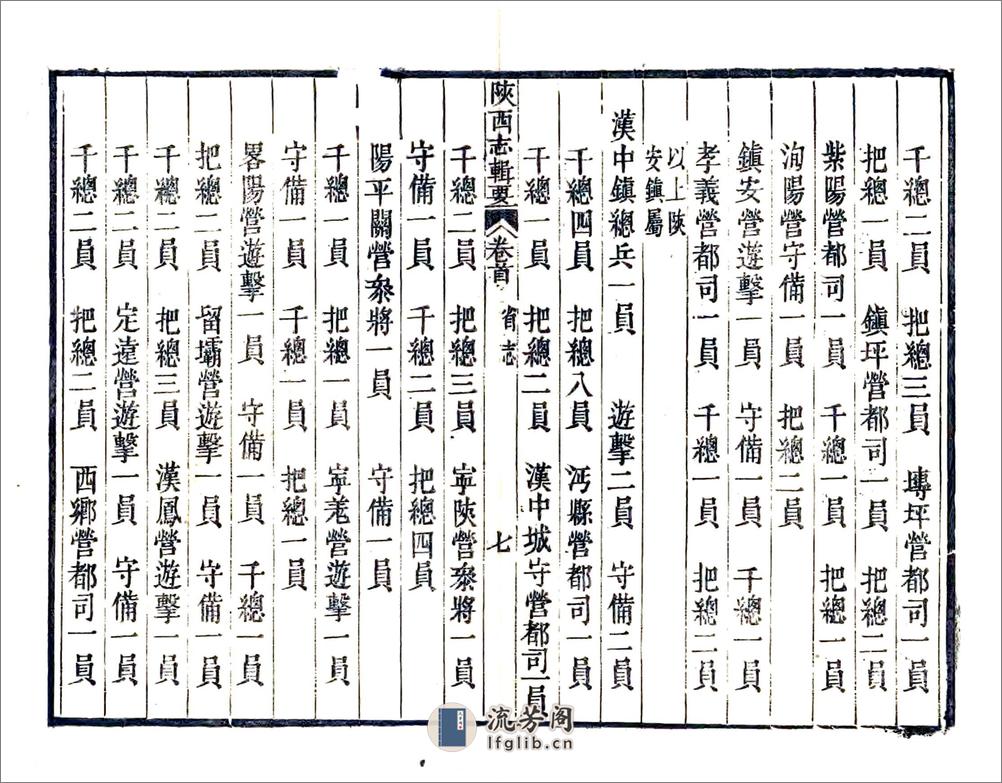 千總二員　把總三員　塼坪營都司一員
把總一員　鎮坪營都司一員　把總二員
紫陽營都司一員　千總一員　把總一員
洵陽營守備一員　把總二員
鎮安營遊擊一員　守備一員　千總一員
孝義營都司一員　千總一員　把總二員
以上陝
安鎮屬
漢中鎮總兵一員　遊擊二員　守備二員
千總四員　把總八員　沔縣營都司一員
千總一員　把總二員　漢中城守營都司一員
陝西志輯要　卷首　省志　七
千總二員　把總三員　寧陝營叅將一員
守備一員　千總二員　把總四員
陽平關營叅將一員　守備一員
千總一員　把總一員　寧羌營遊擊一員
守備一員　千總一員　把總一員
畧陽營遊擊一員　守備一員　千總一員
把總二員　留壩營遊擊一員　守備一員
千總二員　把總三員　漢鳳營遊擊一員
千總二員　定遠營遊擊一員　守備一員
千總二員　把總二員　西鄉營都司一員
流芳阁
lfglib.cn